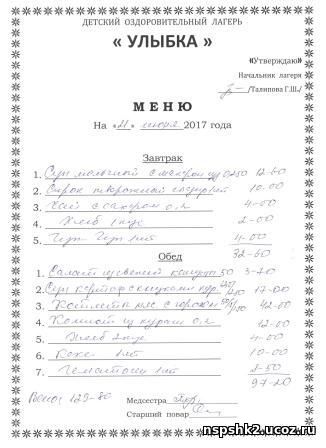 ДЕТСКИЙ ОЗДОРОВИТЕЛЬНЫЙ ЛАГЕРЬ
« УЛЫБКА »
«Утверждаю»
Начальник лагеря
/Талипова Г.Ш./
МЕНЮ
На «21» июня 2017 года
Завтрак
1. Суп молочный с макарон 0,250 12-60
2. Сырок творожный 1шт 10-00
3. Чай с сахаром 0,2 4-00
4. Хлеб 2-00
5. Чуп-Чупс 1шт 4-00
32-60
Обед
1. Салат из свежей капусты 50 3-70
2. Суп картофельный 17-00
3. Котлеты с 42-00
4. Компот из кураги 0,2 12-00
5. Хлеб 4-00
6. 1шт 10-00
7. Гематоген 1шт 8-50
97-20
Всего 129-80
Медсестра
Старший повар
nspshk2.ucoz.ru